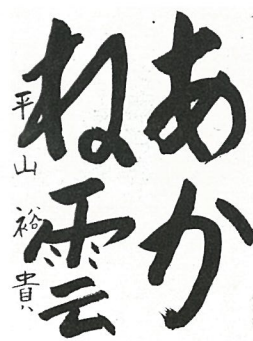 あか
ね雲
平山 裕貴